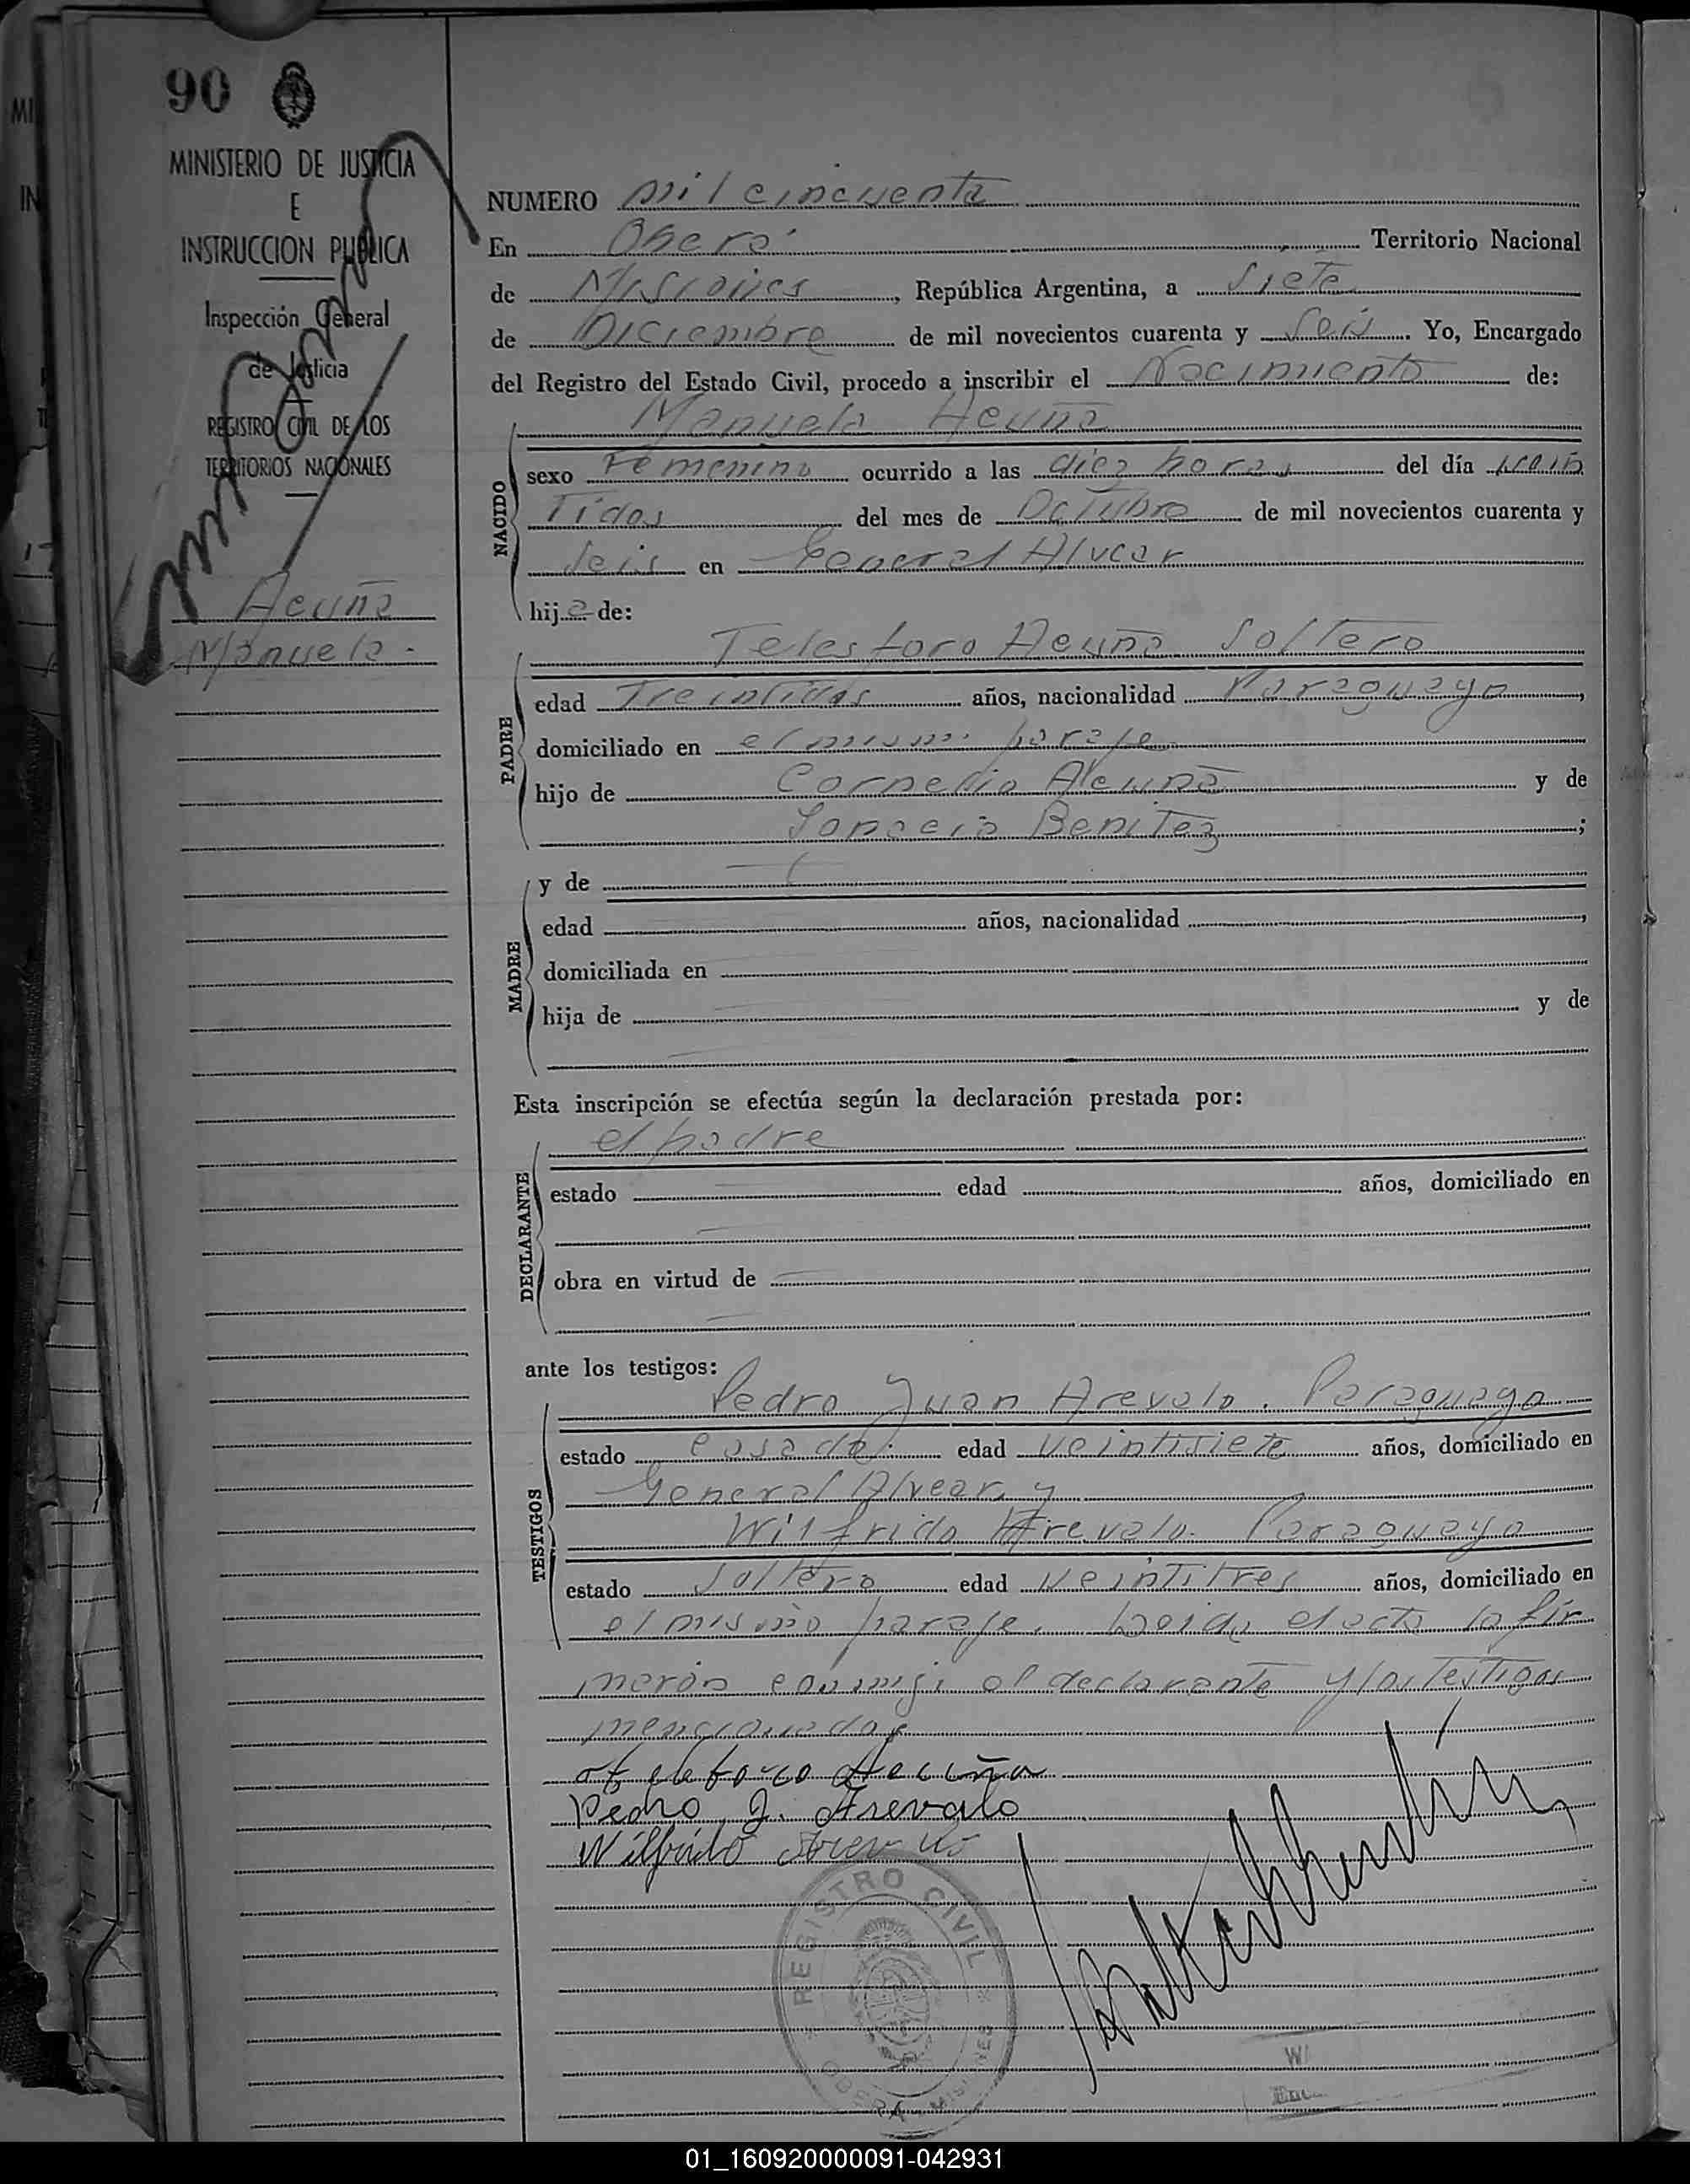 90
MINISTERIO DE JUSTICIA
E
INSTRUCCION PUBLICA
Inspección General
de Justicia
REGISTRO CIVIL DE LOS
TERRITORIOS NACIONALES
Acuña
Manuela.
NUMERO mil cincuenta
En Oberá Territorio Nacional
de Misiones, República Argentina, a Siete
de Diciembre de mil novecientos cuarenta y Seis. Yo, Encargado
del Registro del Estado Civil, procedo a inscribir el Nacimiento de:
Manuela Acuña
NACIDO
sexo Femenino ocurrido a las diez horas del día vein
tidos del mes de Octubre de mil novecientos cuarenta y
Seis en General Alvear
hija de:
Telesforo Acuña Soltero
PADRE
edad Treintidos años, nacionalidad Paraguayo,
domiciliado en el mismo paraje
hijo de Cornelio Acuña y de
Benitez;
MADRE
y de
edad años, nacionalidad,
domiciliada en
hija de y de
Esta inscripción se efectúa según la declaración prestada por:
el padre
DECLARANTE
estado edad años, domiciliado en
obra en virtud de
ante los testigos:
Pedro Juan Arevalo. Paraguayo
TESTIGOS
estado casado. edad veintisiete años, domiciliado en
General Alvear, y
Wilfrido Arevalo. Paraguayo
estado Soltero edad veintitres años, domiciliado en
el mismo paraje. Leida el acta la fir
marón conmigo el declarante y los testigos
mencionados
Acuña
Pedro J. Arevalo
Wilfrido
REGISTRO CIVIL
OBERA MISIONES
01_160920000091-042931